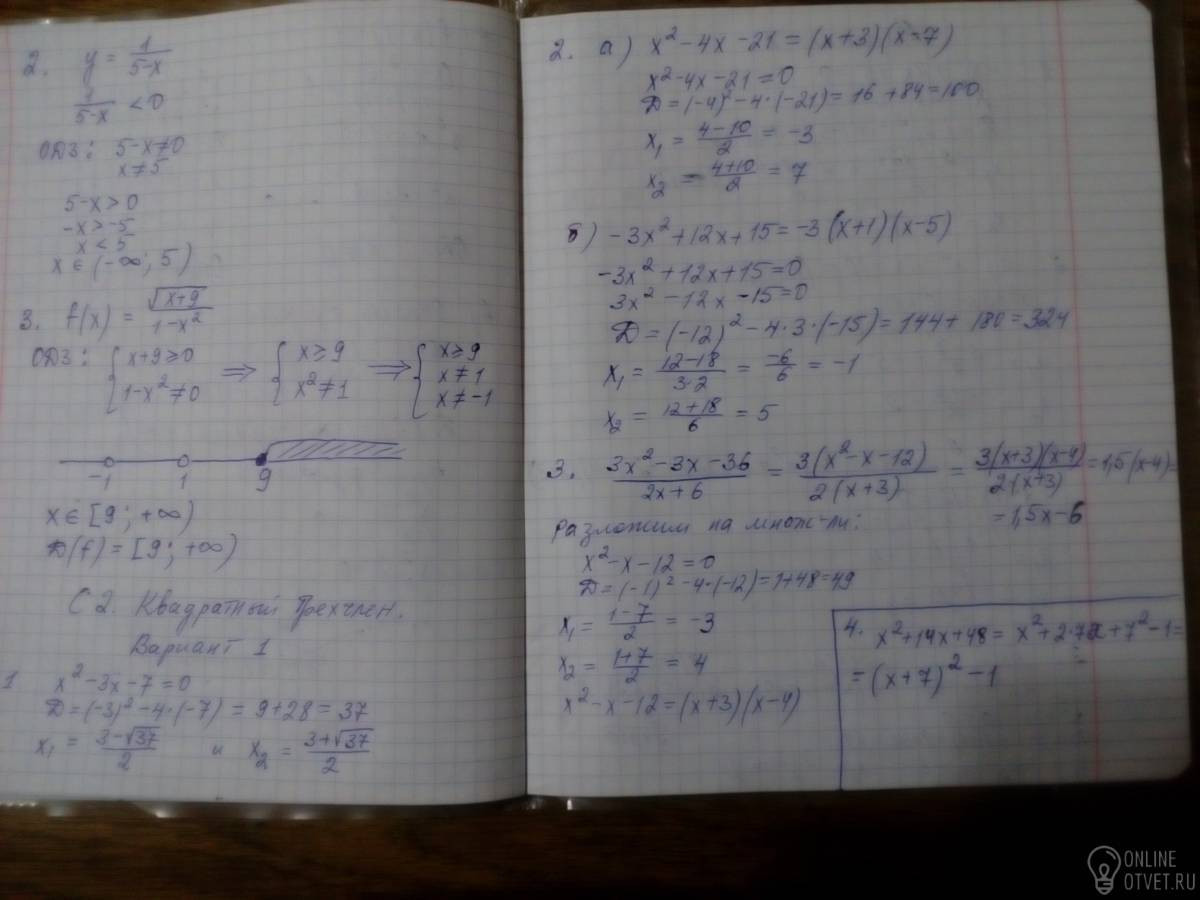 2. y = 1/(5-x)
1/(5-x) < 0
ОДЗ: 5-x≠0
x≠5
5-x>0
-x>-5
x<5
x∈(-∞; 5)
3. f(x) = √(x+9)/(1-x²)
ОДЗ: { x+9≥0 ⇒ { x≥9 ⇒ { x≥9
1-x²≠0 x²≠1 x≠1
x≠-1
-1 1 9
x∈[9; +∞)
D(f)=[9; +∞)
С2. Квадратный трехчлен.
Вариант 1
1 x²-3x-7=0
D=(-3)²-4·(-7)=9+28=37
x₁=(3-√37)/2 и x₂=(3+√37)/2
2. а) x²-4x-21=(x+3)(x-7)
x²-4x-21=0
D=(-4)²-4·(-21)=16+84=100
x₁=(4-10)/2=-3
x₂=(4+10)/2=7
б) -3x²+12x+15=-3(x+1)(x-5)
-3x²+12x+15=0
3x²-12x-15=0
D=(-12)²-4·3·(-15)=144+180=324
x₁=(12-18)/(3·2)=-6/6=-1
x₂=(12+18)/6=5
3. (3x²-3x-36)/(2x+6)=3(x²-x-12)/(2(x+3))=3(x+3)(x-4)/(2(x+3))=1,5(x-4)=
=1,5x-6
разложим на множ-ли:
x²-x-12=0
D=(-1)²-4·(-12)=1+48=49
x₁=(1-7)/2=-3
x₂=(1+7)/2=4
x²-x-12=(x+3)(x-4)
4. x²+14x+48=x²+2·7x+7²-1=
=(x+7)²-1
ONLINE
OTVET.RU